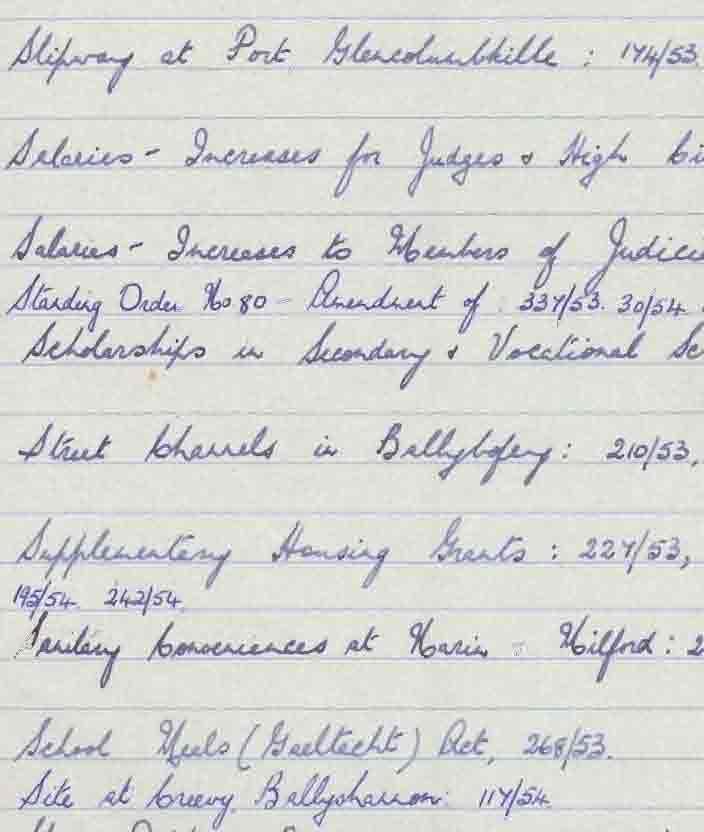 Slipway at Port Glencolumbkille : 174/53.
Salaries - Increases for Judges & High
Salaries - Increases to Members of
Standing Order No 80 - Amendment of : 337/53. 30/54
Scholarships in Secondary & Vocational Sc
Street Channels in Ballybofey : 210/53,
Supplementary Housing Grants : 227/53,
195/54. 242/54.
Sanitary Conveniences at Narin - Milford : 2
School Meals (Gaeltacht) Act, 268/53.
Site at Creevy, Ballyshannon: 117/54.